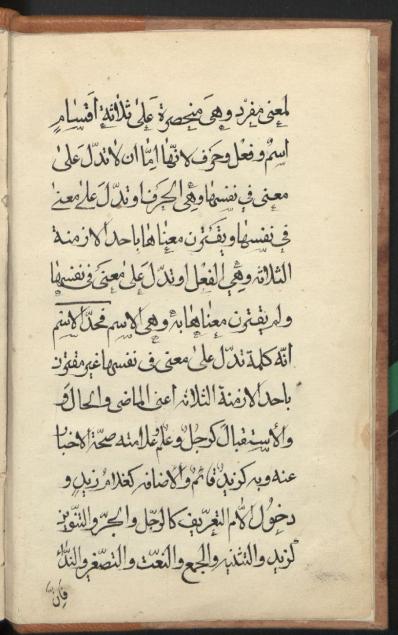 لمعنى مفرد وهى منحصرة على ثلاثة اقسام
اسم وفعل وحرف لانها اما ان لا تدل على
معنى فى نفسها وهى الحرف او تدل على معنى
فى نفسها ويقترن معناها باحد الازمنة
الثلاثه وهى الفعل او تدل على معنى فى نفسها
ولم يقترن معناها به وهى الاسم فحد الاسم
انه كلمة تدل على معنى فى نفسها غير مقترن
باحد الازمنة الثلاثه اعنى الماضى والحال و
والاستقبال كرجل وعلم وعلامته صحة الاخبار
عنه وبه كزيد قائم والاضافه كغلام زيد و
دخول لام التعريف كالرجل والجر والتنوين
كزيد والتثنيه والجمع والنعت والتصغير والنداء
فان